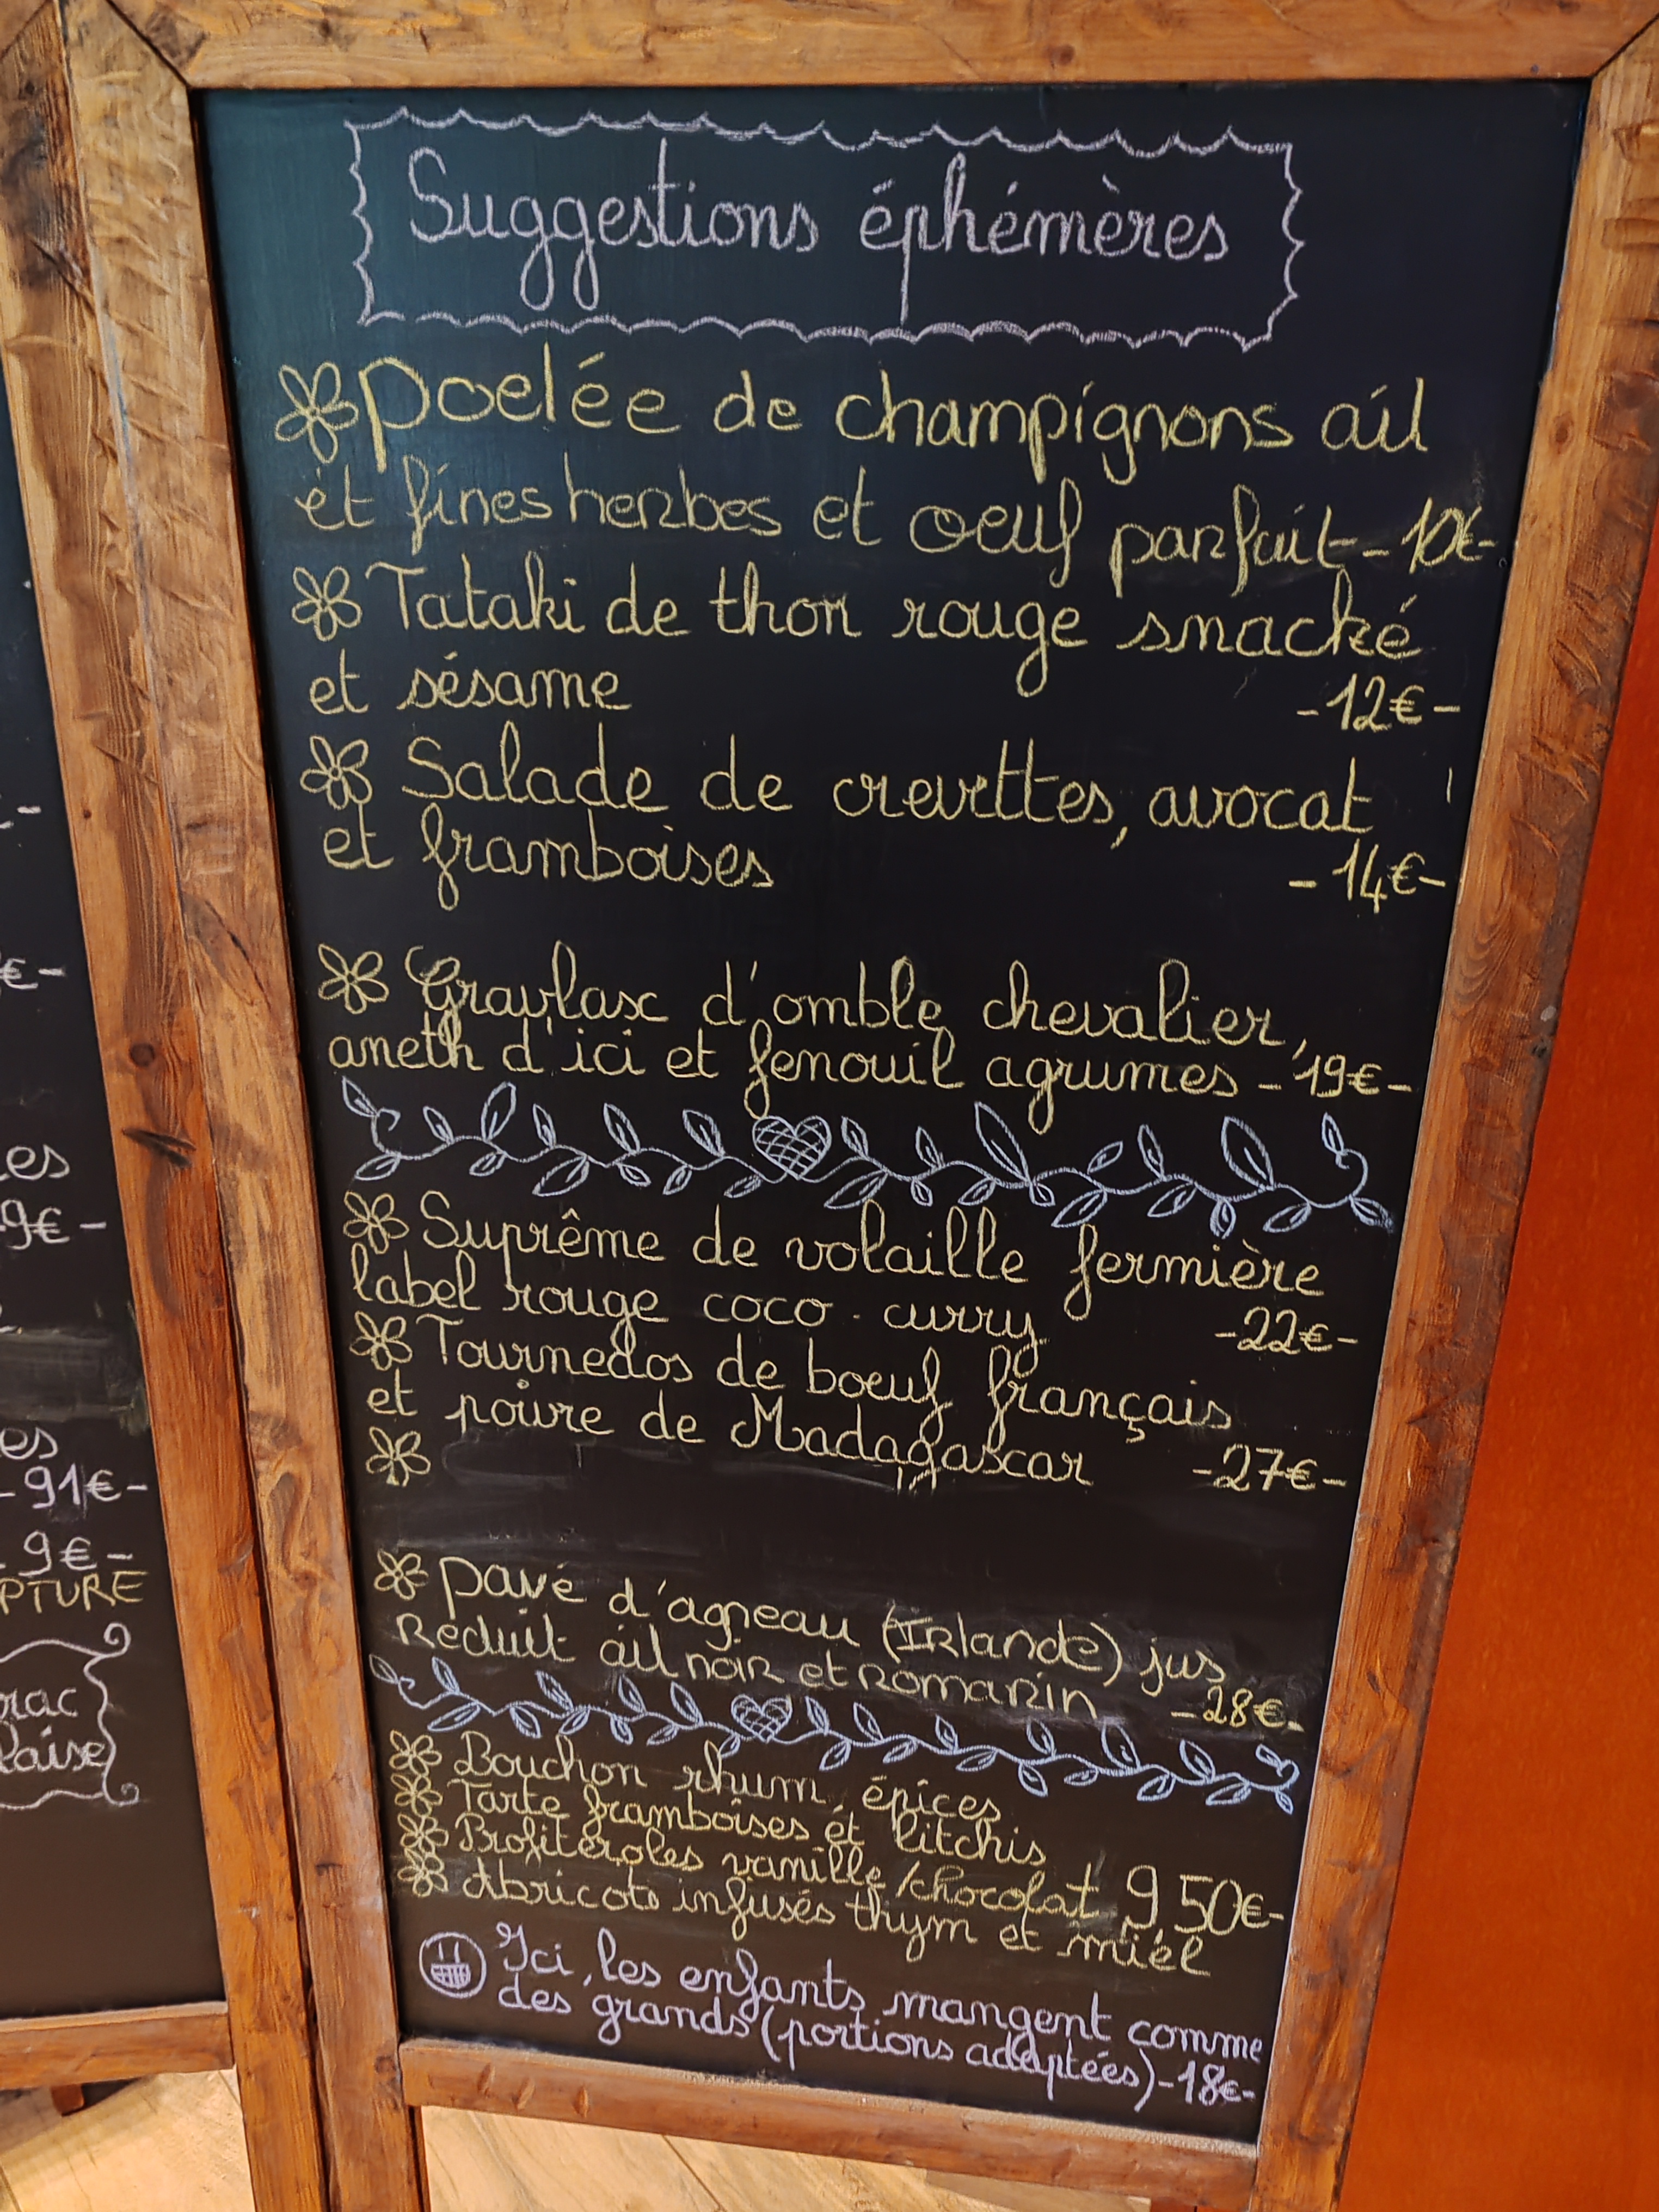 Suggestions éphémères
poelée de champignons ail
et fines herbes et oeuf parfait - 10€-
Tataki de thon rouge snacké
et sésame -12€-
Salade de crevettes, avocat
et framboises -14€-
Gravlax d'omble chevalier,
aneth d'ici et fenouil agrumes - 19€-
Suprême de volaille fermière
label rouge coco-curry -22€-
Tournedos de boeuf français
et poivre de Madagascar -27€-
pavé d'agneau (IRlande) jus
Réduit ail noir et Romarin -28€-
Bouchon rhum, épices
Tarte framboises et litchis
Profiteroles vanille/chocolat 9,50€-
Abricots infusés thym et miel
Ici, les enfants mangent comme
des grands (portions adaptées)-18€-
€-
es
9€-
es
-91€-
9€-
PTURE
rac
laise